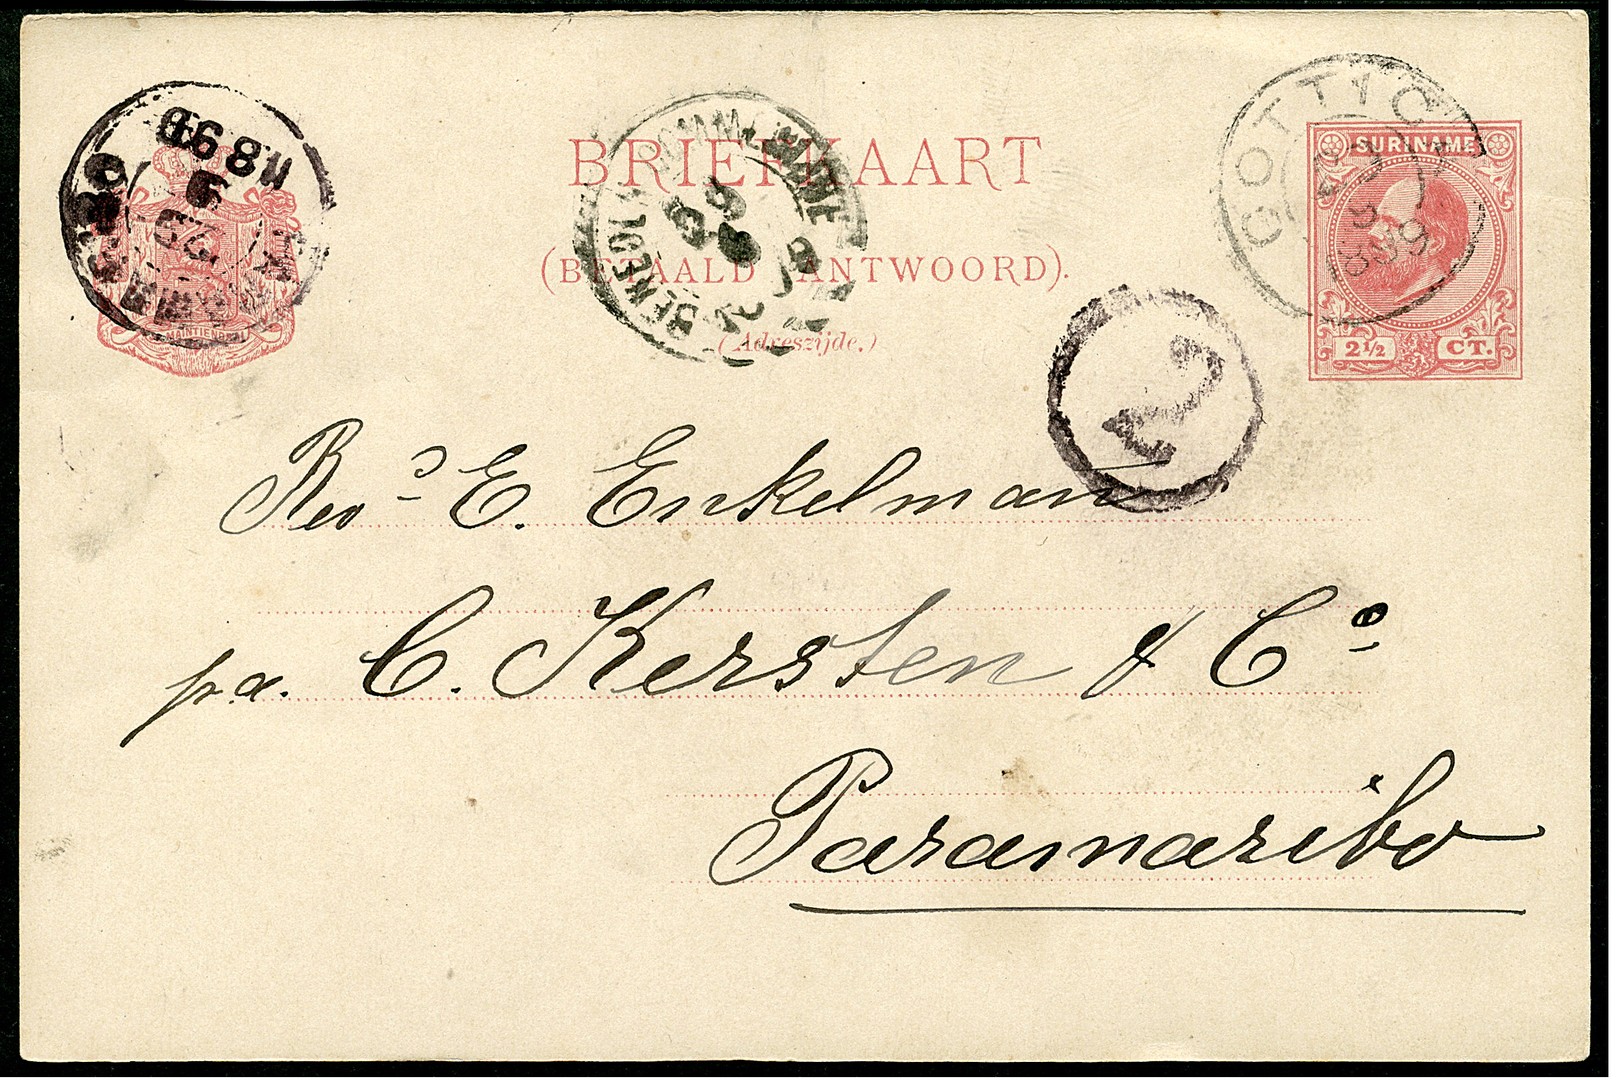 BRIEFKAART
(BETAALD ANTWOORD).
(Adreszijde.)
SURINAME
2½ CT.
COTTICA
MAINTIENDRAI
2
Revd E. Enkelman
p.a. C. Kersten & Co
Paramaribo